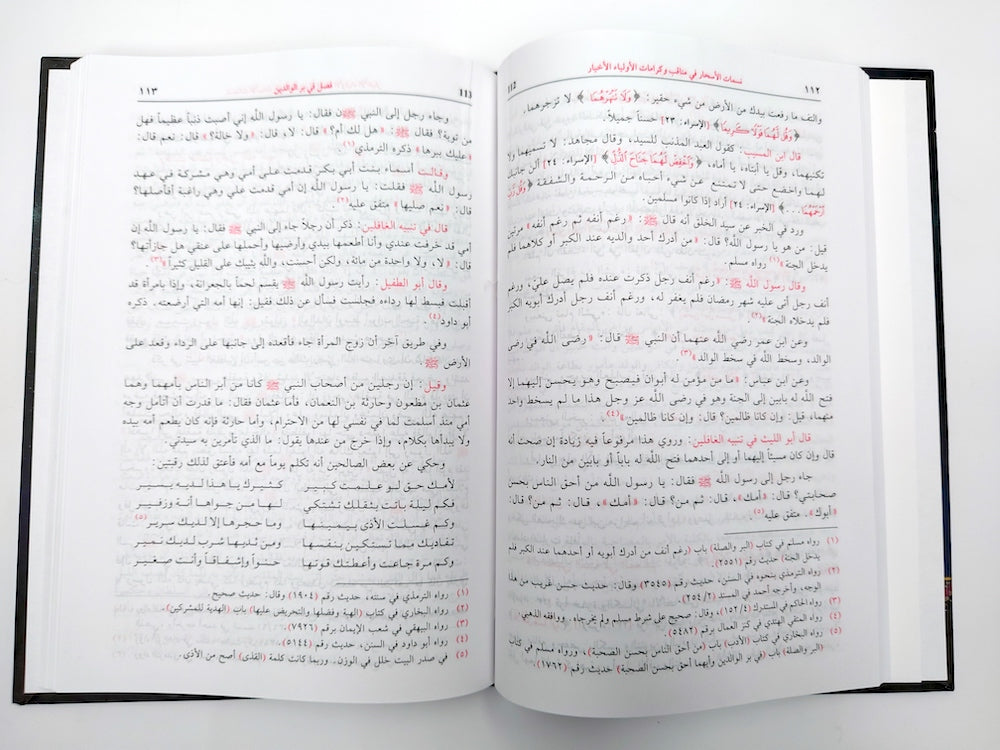 ١١٢
نسمات الأسحار في مناقب وكرامات الأولياء الأخيار
والتف ما رفعت بيدك من الأرض من شيء حقير: ﴿وَلَا تَنْهَرْهُمَا﴾ لا تزجرهما.
﴿وَقُل لَّهُمَا قَوْلًا كَرِيمًا﴾ [الإسراء: ٢٣] حسناً جميلاً.
قال ابن المسيب: كقول العبد المذنب للسيد، وقال مجاهد: لا تسميهما ولا
تكنيهما، وقل يا أبتاه، يا أماه، ﴿وَاخْفِضْ لَهُمَا جَنَاحَ الذُّلِّ﴾ [الإسراء: ٢٤] ألن جانبك
لهما واخضع حتى لا تمتنع عن شيء أحباه من الرحمة والشفقة ﴿وَقُل رَّبِّ
ارْحَمْهُمَا...﴾ [الإسراء: ٢٤] أراد إذا كانوا مسلمين.
ورد في الخبر عن سيد الخلق أنه قال ﷺ: «رغم أنفه ثم رغم أنفه» مرتين
قيل: من هو يا رسول الله؟ قال: «من أدرك أحد والديه عند الكبر أو كلاهما فلم
يدخل الجنة»(١) رواه مسلم.
وقال رسول الله ﷺ: «رغم أنف رجل ذكرت عنده فلم يصل عليَّ، ورغم
أنف رجل أتى عليه شهر رمضان فلم يغفر له، ورغم أنف رجل أدرك أبويه الكبر
فلم يدخلاه الجنة»(٢).
وعن ابن عمر رضي الله عنهما أن النبي ﷺ قال: «رضى الله في رضى
الوالد، وسخط الله في سخط الوالد»(٣)
وعن ابن عباس: «ما من مؤمن له أبوان فيصبح وهو يحسن إليهما إلا
فتح الله له بابين إلى الجنة وهو في رضى الله عز وجل هذا ما لم يسخط واحد
منهما، قيل: وإن كانا ظالمين؟ قال: وإن كانا ظالمين»(٤)
قال أبو الليث في تنبيه الغافلين: وروي هذا مرفوعاً فيه زيادة إن صحت أنه
قال وإن كان مسيئاً إليهما أو إلى أحدهما فتح الله له باباً أو بابين من النار.
جاء رجل إلى رسول الله ﷺ فقال: يا رسول الله من أحق الناس بحسن
صحابتي؟ قال: «أمك»، قال: ثم من؟ قال: «أمك»، قال: ثم من؟ قال:
«أبوك»، متفق عليه(٥).
(١) رواه مسلم في كتاب (البر والصلة) باب (رغم أنف من أدرك أبويه أو أحدهما عند الكبر فلم
يدخل الجنة) حديث رقم (٢٥٥١).
(٢) رواه الترمذي بنحوه في السنن، حديث رقم (٣٥٤٥) وقال: حديث حسن غريب من هذا
الوجه، وأخرجه أحمد في المسند (٢/٢٥٤).
(٣) رواه الحاكم في المستدرك (٤/١٥٢)، وقال: صحيح على شرط مسلم ولم يخرجاه. ووافقه الذهبي
(٤) رواه المتقي الهندي في كنز العمال برقم (٥٤٨٢)
(٥) رواه البخاري في كتاب (الأدب) باب (من أحق الناس بحسن الصحبة)، ورواه مسلم في كتاب
(البر والصلة) باب (في بر الوالدين وأيهما أحق بحسن الصحبة) حديث رقم (١٧٦٢)
فصل في بر الوالدين
١١٣
وجاء رجل إلى النبي ﷺن فقال: يا رسول الله إني أصبت ذنباً عظيماً فهل
من توبة؟ فقال ﷺ: «هل لك أم؟» قال: لا، قال: «ولا خالة؟» قال: نعم قال:
«عليك ببرها» ذكره الترمذي(١).
وقالت أسماء بنت أبي بكر قدمت على أمي وهي مشركة في عهد
رسول الله ﷺ فقلت: يا رسول الله إن أمي قدمت علي وهي راغبة أفاصلها؟
قال: «نعم صليها» متفق عليه(٢).
قال في تنبيه الغافلين: ذكر أن رجلاً جاء إلى النبي ﷺ فقال: يا رسول الله إن
أمي قد خرفت عندي وأنا أطعمها بيدي وأرضيها وأحملها على عنقي هل جازأتها؟
قال: «لا، ولا واحدة من مائة، ولكن أحسنت، والله يثيبك على القليل كثيراً»(٣).
وقال أبو الطفيل: رأيت رسول الله ﷺ يقسم لحماً بالجعرانة، وإذا بامرأة قد
أقبلت فبسط لها رداءه فجلست فسأل عن ذلك فقيل: إنها أمه التي أرضعته. ذكره
أبو داود(٤).
وفي طريق آخر أن زوج المرأة جاء فأقعده إلى جانبها على الرداء وقعد على
الأرض ﷺ
وقيل: إن رجلين من أصحاب النبي ﷺ كانا من أبر الناس بأمهما وهما
عثمان بن مظعون وحارثة بن النعمان، فأما عثمان فقال: ما قدرت أن أتأمل وجه
أمي منذ أسلمت لما في نفسي لها من الاحترام، وأما حارثة فإنه كان يطعم أمه بيده
ولا يبدأها بكلام، وإذا خرج من عندها يقول: ما الذي تأمرين به سيدتي.
وحكي عن بعض الصالحين أنه تكلم يوماً مع أمه فأعتق لذلك رقبتين:
لأمك حق لو علمت كبير كثيرك يا هذا لديه يسير
فكم ليلة باتت بثقلك تشتكي لها من جواها أنة وزفير
وكم غسلت الأذى بيمينها وما حجرها إلا لديك سرير(٥)
تفاديك مما تستكين بنفسها ومن ثديها شرب لديك نمير
وكم مرة جاعت وأعطتك قوتها حنواً وإشفاقاً وأنت صغير
(١) رواه الترمذي في سننه، حديث رقم (١٩٠٤) وقال: حديث صحيح.
(٢) رواه البخاري في كتاب (الهبة وفضلها والتحريض عليها) باب (الهدية للمشركين).
(٣) رواه البيهقي في شعب الإيمان برقم (٧٩٢٦)
(٤) رواه أبو داود في السنن، حديث رقم (٥١٤٤)
(٥) في صدر البيت خلل في الوزن. وربما كانت كلمة (القذى) أصح من الأذى.